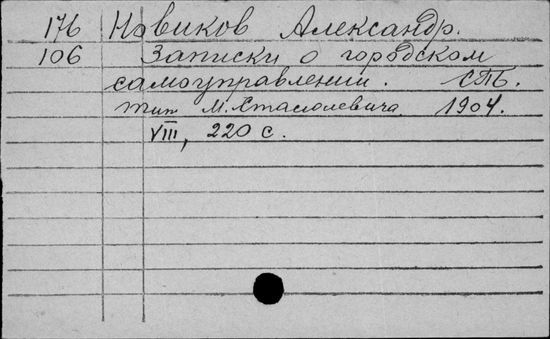 176 Новиков Александр.
106 Записки о городском
самоуправлении. СПБ.
тип М. Стасюлевича 1904.
VIII, 220 с.